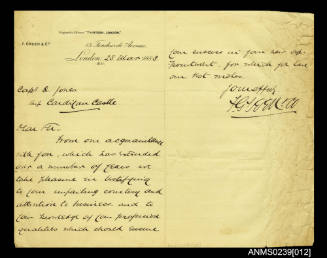 F. GREEN & CO.
13, Fenchurch Avenue,
London, 28 Mar 1893
Capt D. Jones
Cardigan Castle
Dear Sir,
From our acquaintance
with you, which has extended
over a number of years we
take pleasure in testifying
to your unfailing courtesy and
attention to business and to
your knowledge of your profession
qualities which should ensure
your success in your new ap-
pointment, for which you have
our best wishes
Yours truly
ANMS0239[012]